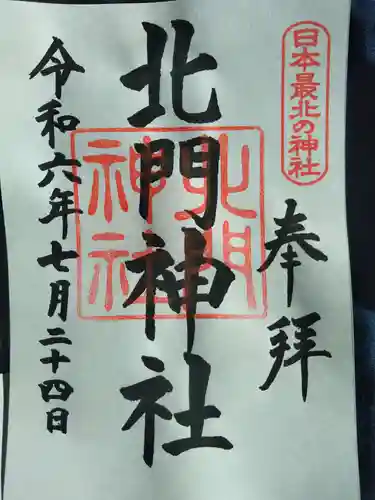 日本最北の神社
奉拝
北門神社
北門神社
令和六年七月二十四日